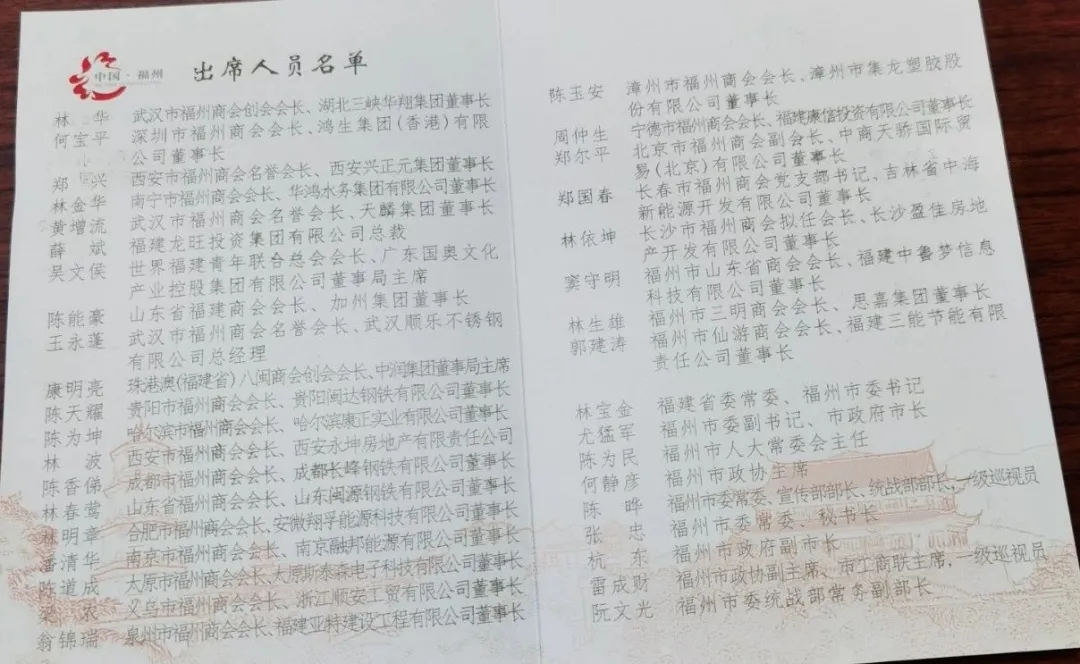 中国·福州
出席人员名单
林 华 武汉市福州商会创会会长、湖北三峡华翔集团董事长
何宝平 深圳市福州商会会长、鸿生集团(香港)有限
公司董事长
郑 兴 西安市福州商会名誉会长、西安兴正元集团董事长
林金华 南宁市福州商会会长、华鸿水务集团有限公司董事长
黄增流 武汉市福州商会名誉会长、天麟集团董事长
薛 斌 福建龙旺投资集团有限公司总裁
吴文侯 世界福建青年联合总会会长、广东国奥文化
产业控股集团有限公司董事局主席
陈能豪 山东省福建商会会长、加州集团董事长
王永蓬 武汉市福州商会名誉会长、武汉顺乐不锈钢
有限公司总经理
康明亮 珠港澳(福建省)八闽商会创会会长、中润集团董事局主席
陈天耀 贵阳市福州商会会长、贵阳闽达钢铁有限公司董事长
陈为坤 哈尔滨市福州商会会长、哈尔滨康正实业有限公司董事长
林 波 西安市福州商会会长、西安永坤房地产有限责任公司
陈香俤 成都市福州商会会长、成都长峰钢铁有限公司董事长
林春莺 山东省福州商会会长、山东闽源钢铁有限公司董事长
林明章 合肥市福州商会会长、安徽翔孚能源科技有限公司董事长
潘清华 南京市福州商会会长、南京融邦能源有限公司董事长
陈道成 太原市福州商会会长、太原斯泰森电子科技有限公司董事长
梁 义乌市福州商会会长、浙江顺安工贸有限公司董事长
翁锦瑞 泉州市福州商会会长、福建亚特建设工程有限公司董事长
陈玉安 漳州市福州商会会长、漳州市集龙塑胶股
份有限公司董事长
周仲生 宁德市福州商会会长、福建康信投资有限公司董事长
郑尔平 北京市福州商会副会长、中商天骄国际贸
易(北京)有限公司董事长
郑国春 长春市福州商会党支部书记、吉林省中海
新能源开发有限公司董事长
林依坤 长沙市福州商会拟任会长、长沙盈佳房地
产开发有限公司董事长
窦守明 福州市山东省商会会长、福建中鲁梦信息
科技有限公司董事长
林生雄 福州市三明商会会长、思嘉集团董事长
郭建涛 福州市仙游商会会长、福建三能节能有限
责任公司董事长
林宝金 福建省委常委、福州市委书记
尤猛军 福州市委副书记、市政府市长
陈为民 福州市人大常委会主任
何静彦 福州市政协主席
陈 晔 福州市委常委、宣传部部长、统战部部长、一级巡视员
张 忠 福州市委常委、秘书长
杭 东 福州市政府副市长
雷成财 福州市政协副主席、市工商联主席,一级巡视员
阮文光 福州市委统战部常务副部长